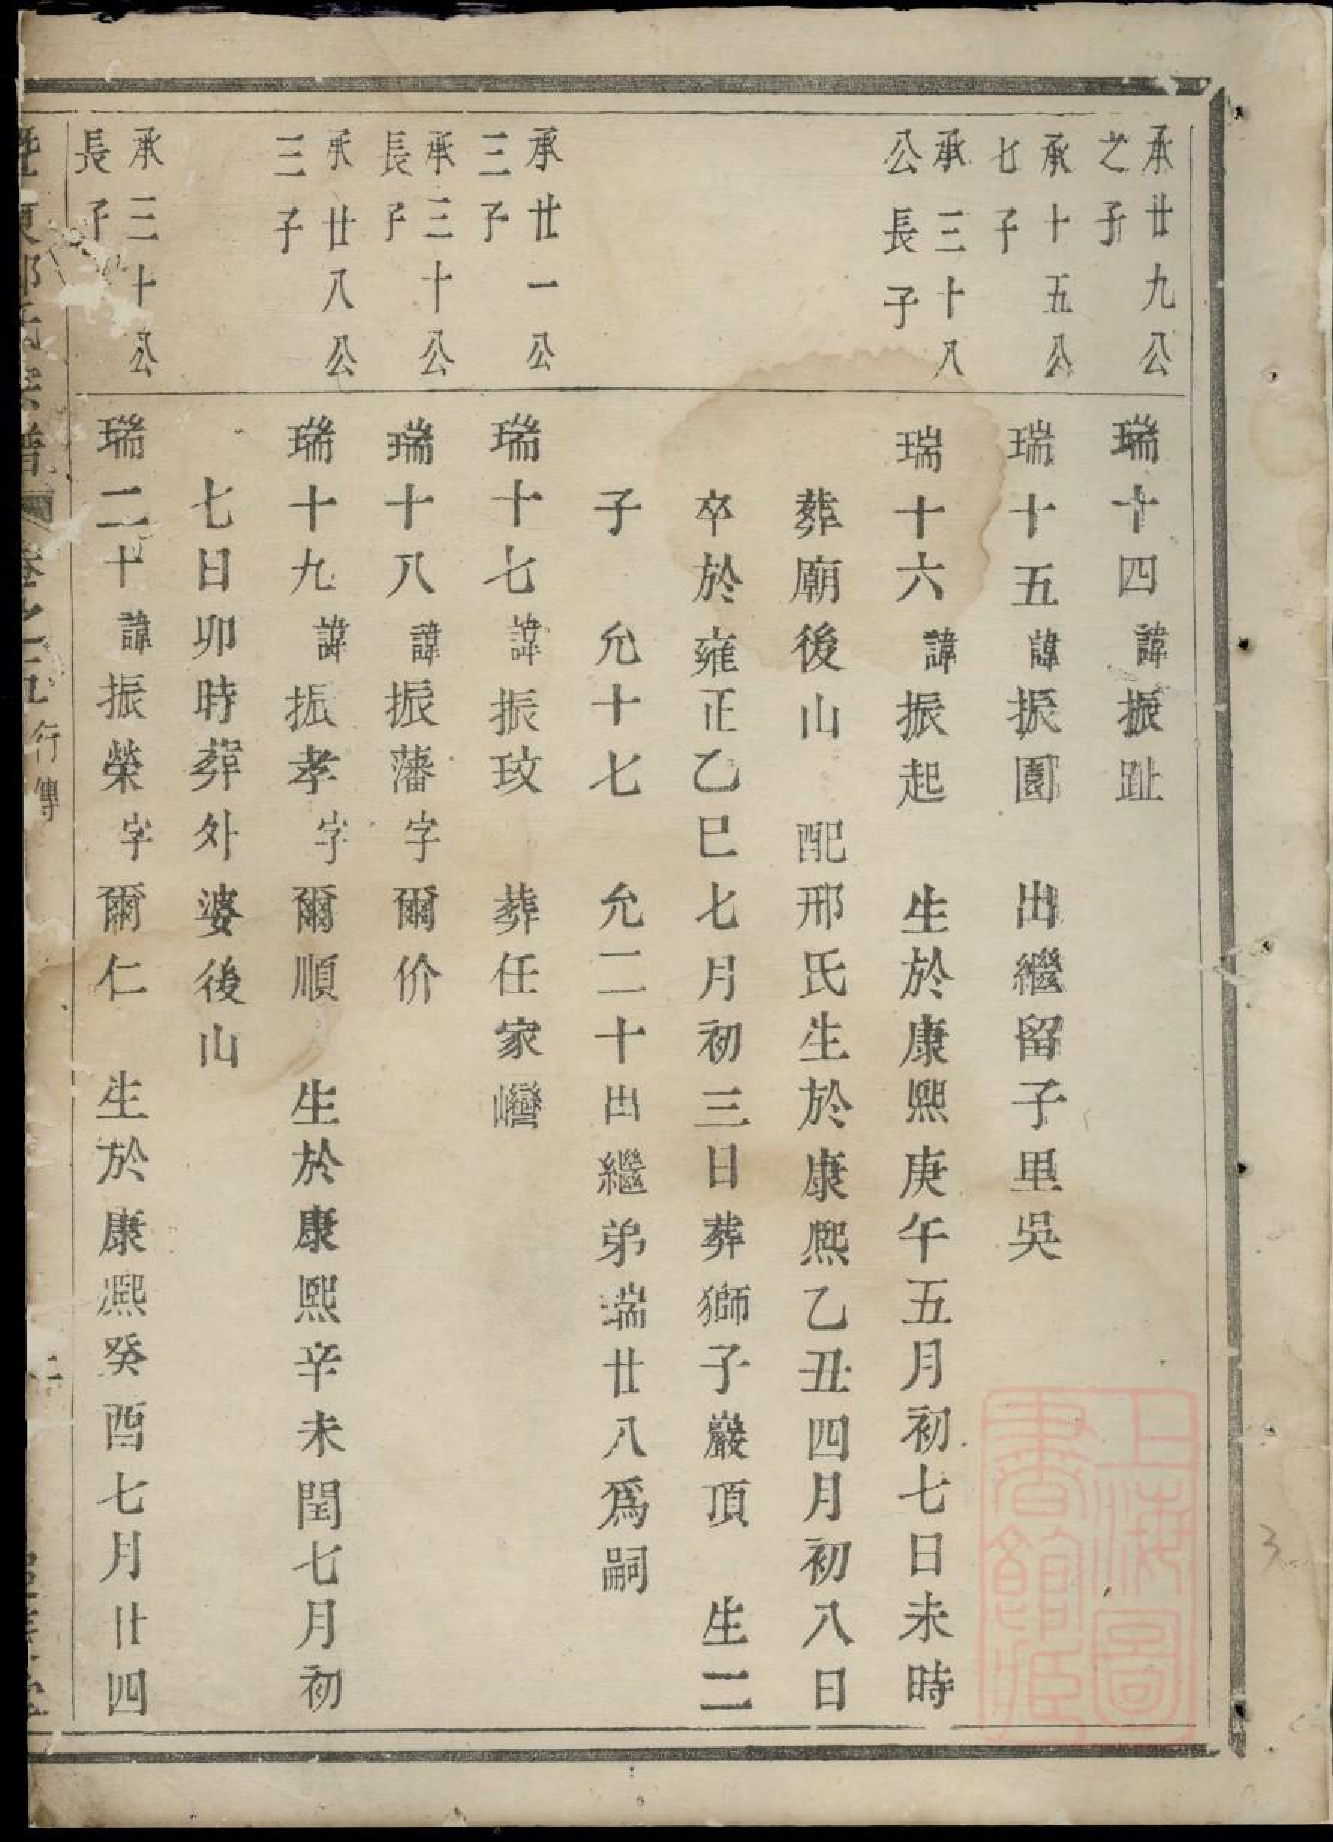 承廿九公
之子
瑞十四諱振趾
承十五公
七子
瑞十五諱振園 出繼留子里吳
承三十八
公長子
瑞十六諱振起 生於康熙庚午五月初七日未時
葬廟後山 配邢氏生於康熙乙丑四月初八日
卒於雍正乙巳七月初三日葬獅子巖頂 生二
子 允十七 允二十出繼弟瑞廿八爲嗣
承廿一公
三子
瑞十七諱振玟 葬任家巒
承三十公
長子
瑞十八諱振藩字爾价
承廿八公
三子
瑞十九諱振孝字爾順 生於康熙辛未閏七月初
七日卯時葬外婆後山
承三十公
長子
瑞二十諱振榮字爾仁 生於康熙癸酉七月廿四
宗譜 卷之 行傳
上海圖
書館藏
3